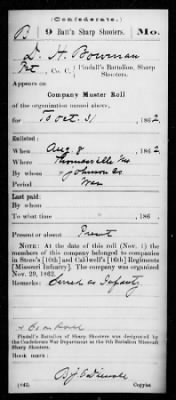 (Confederate.)
B 9 Batt'n Sharp Shooters. Mo.
D. H. Bowman
Pvt, Co. C, Pindall's Battalion, Sharp Shooters.
Appears on
Company Muster Roll
of the organization named above,
for To Oct. 31, 1862.
Enlisted:
When Aug. 8, 1862.
Where Thomasville Mo
By whom Johnson
Period War
Last paid:
By whom
To what time , 186 .
Present or absent Present
NOTE: At the date of this roll (Nov. 1) the
members of this company belonged to companies
in Steen's [10th] and Caldwell's [16th] Regiments
[Missouri Infantry]. The company was organized
Nov. 29, 1862.
Remarks: as Infantry
Pindall's Battalion of Sharp Shooters was designated by
the Confederate War Department as the 9th Battalion Missouri
Sharp Shooters.
Book mark:
(642)
Copyist.